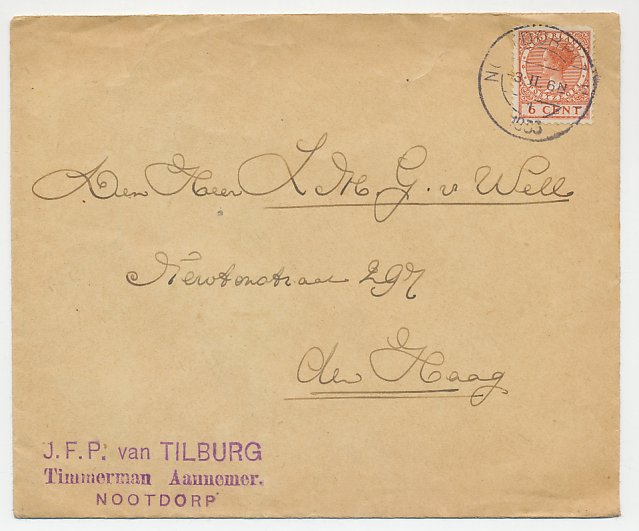 NOOTDORP
3.II 6N
1933
6 CENT
Den Heer L M G. v Well
Newtonstraat 297
den Haag
J. F. P. van TILBURG
Timmerman Aannemer.
NOOTDORP